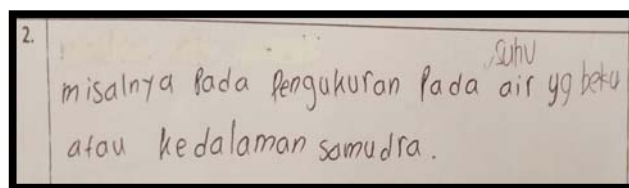 2.
misalnya pada pengukuran pada suhu air yg beku
atau kedalaman samudra.